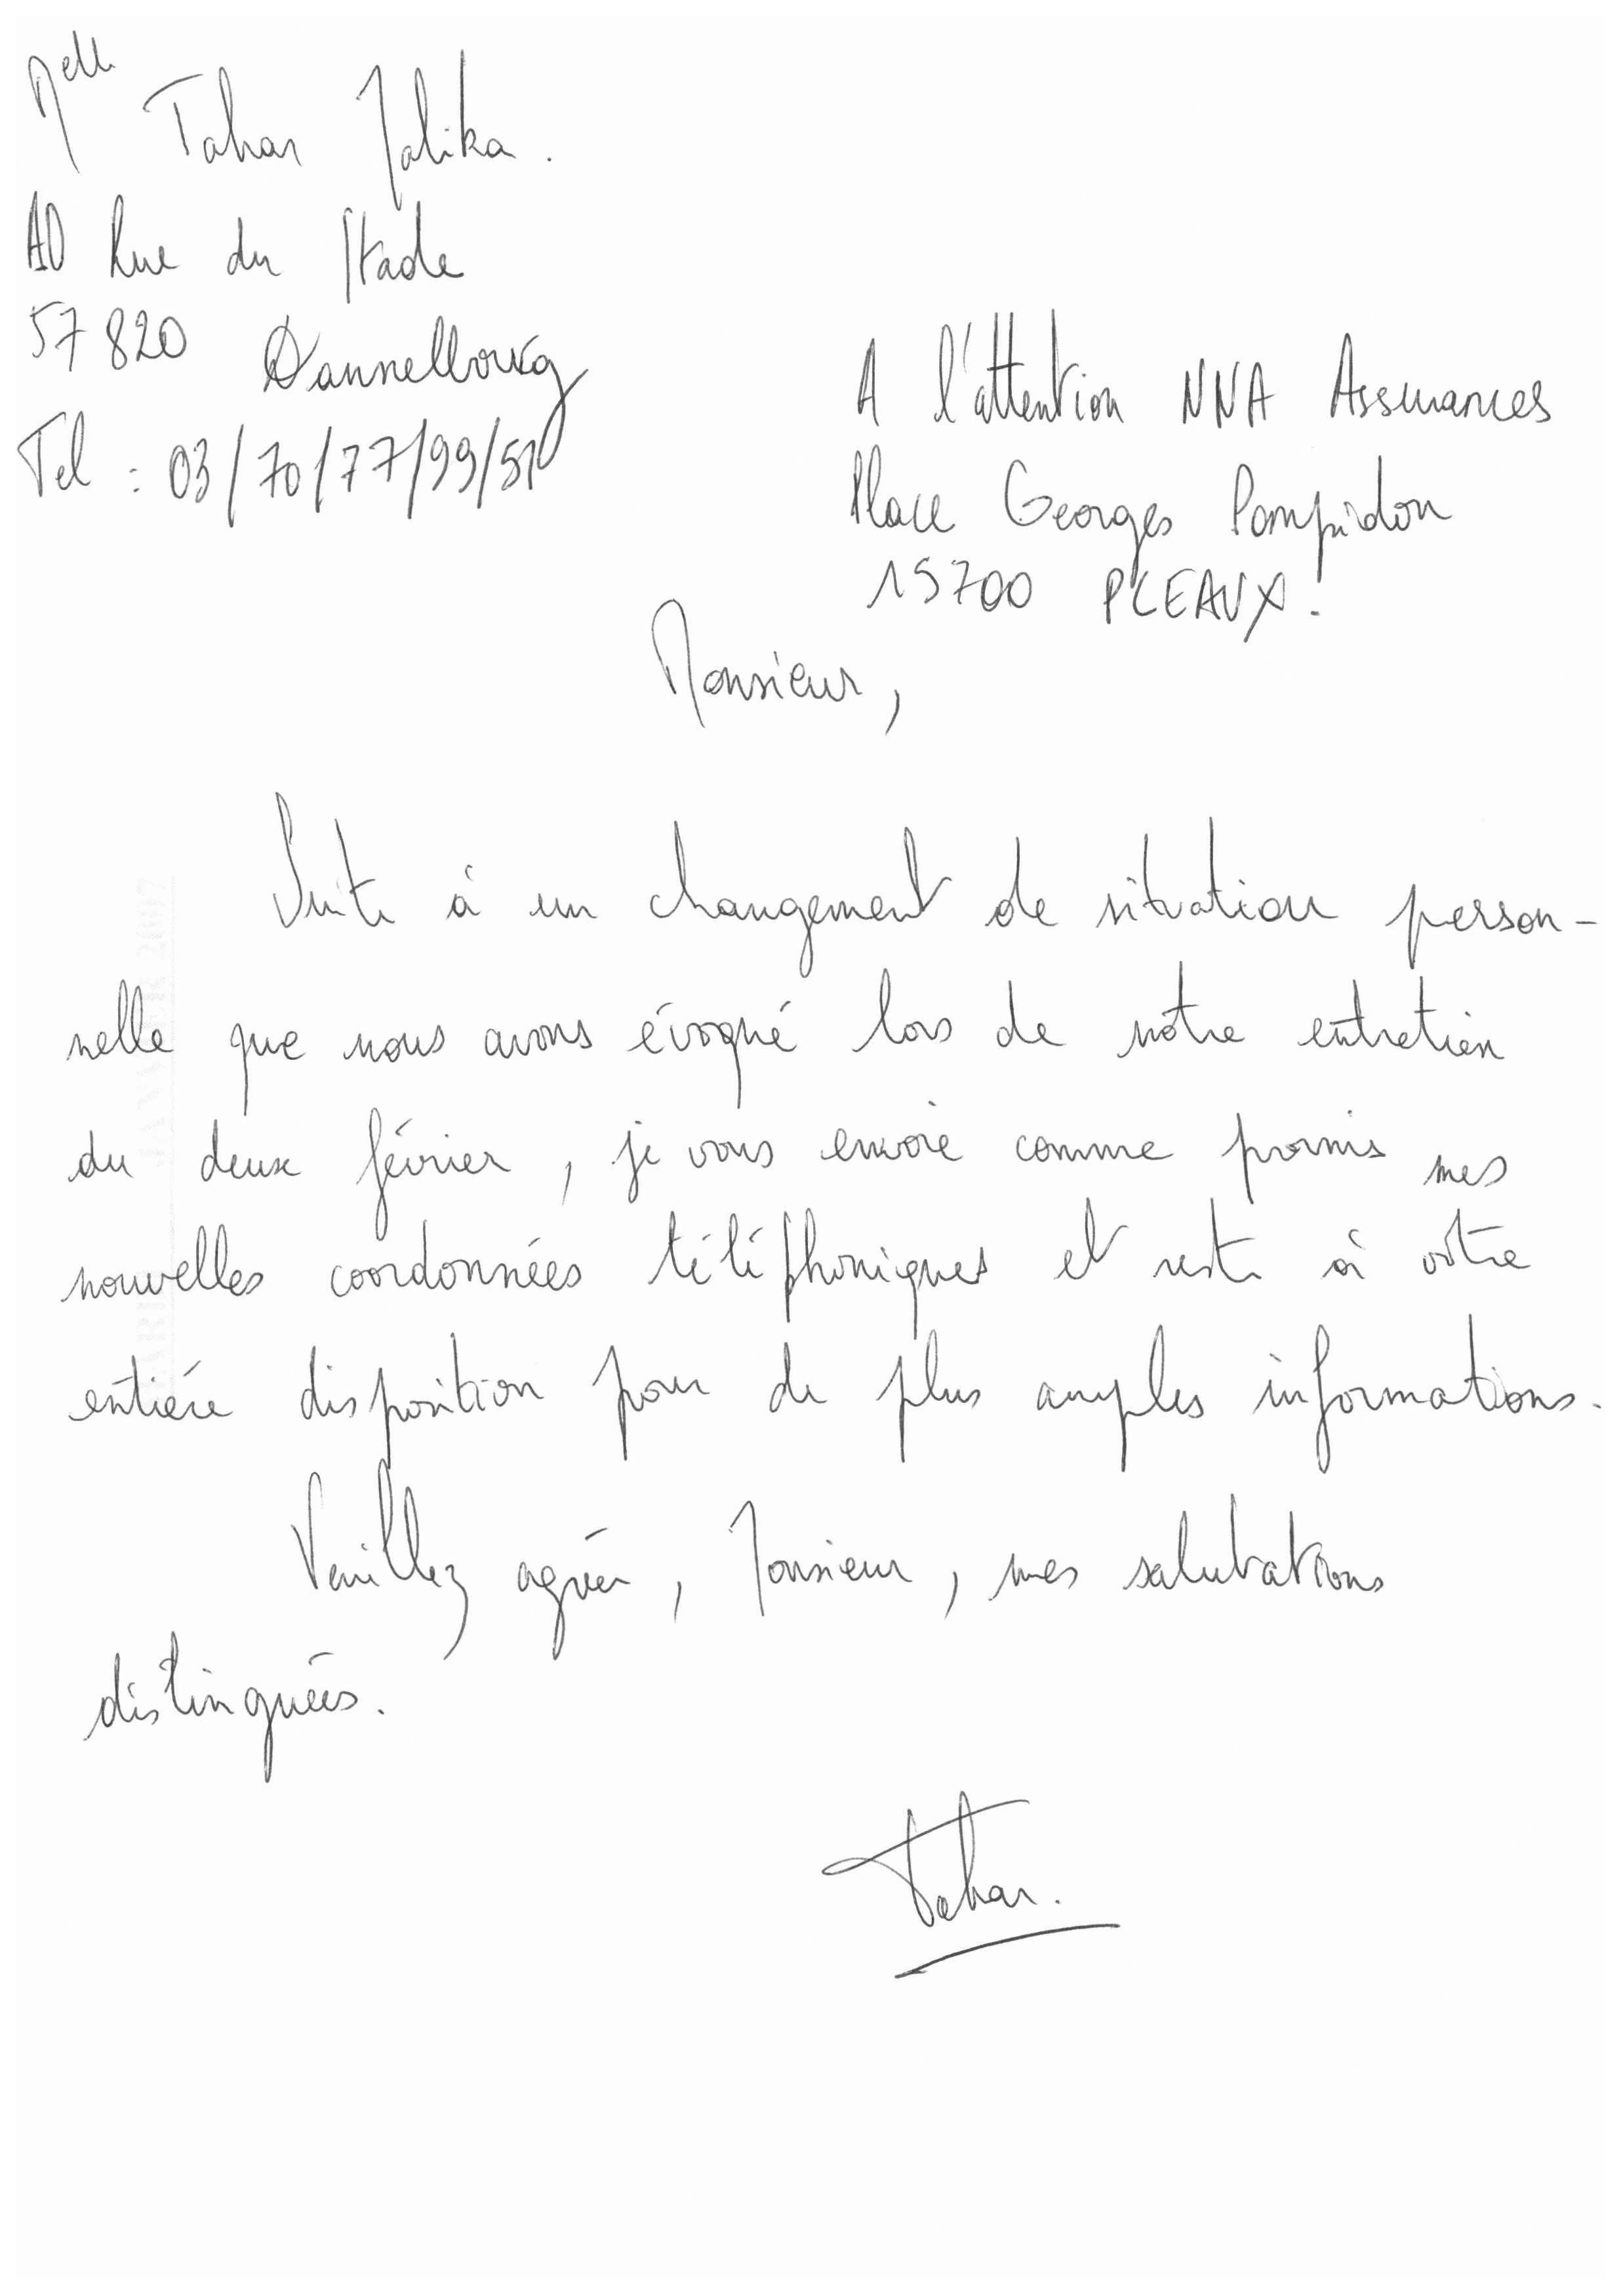 Melle Tahar Malika.
10 Rue du Stade
57820 Dannelbourg
Tel : 03/70/77/99/51
A l'attention NNA Assurances
Place Georges Pompidou
15700 PLEAUX.
Monsieur,
Suite à un changement de situation person-
nelle que nous avons évoqué lors de notre entretien
du deux février, je vous envoie comme promis mes
nouvelles coordonnées téléphoniques et reste à votre
entière disposition pour de plus amples informations.
Veuillez agréer, Monsieur, mes salutations
distinguées.
Tahar.